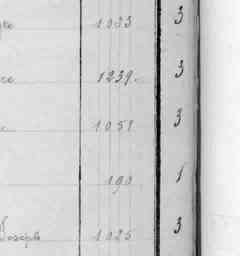 1033 3
1239 3
1051 3
190 1
Joseph 1025 3